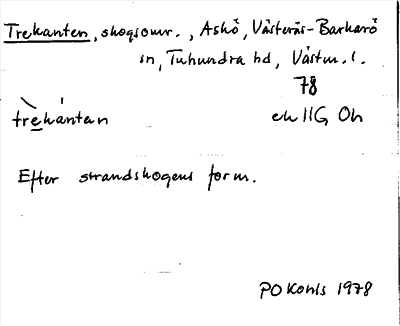 Trekanten, skogsomr., Askö, Västerås-Barkarö
sn, Tuhundra hd, Västm. l.
78
trekántan
ek 11G Oh
Efter strandskogens form.
PO Kohls 1978